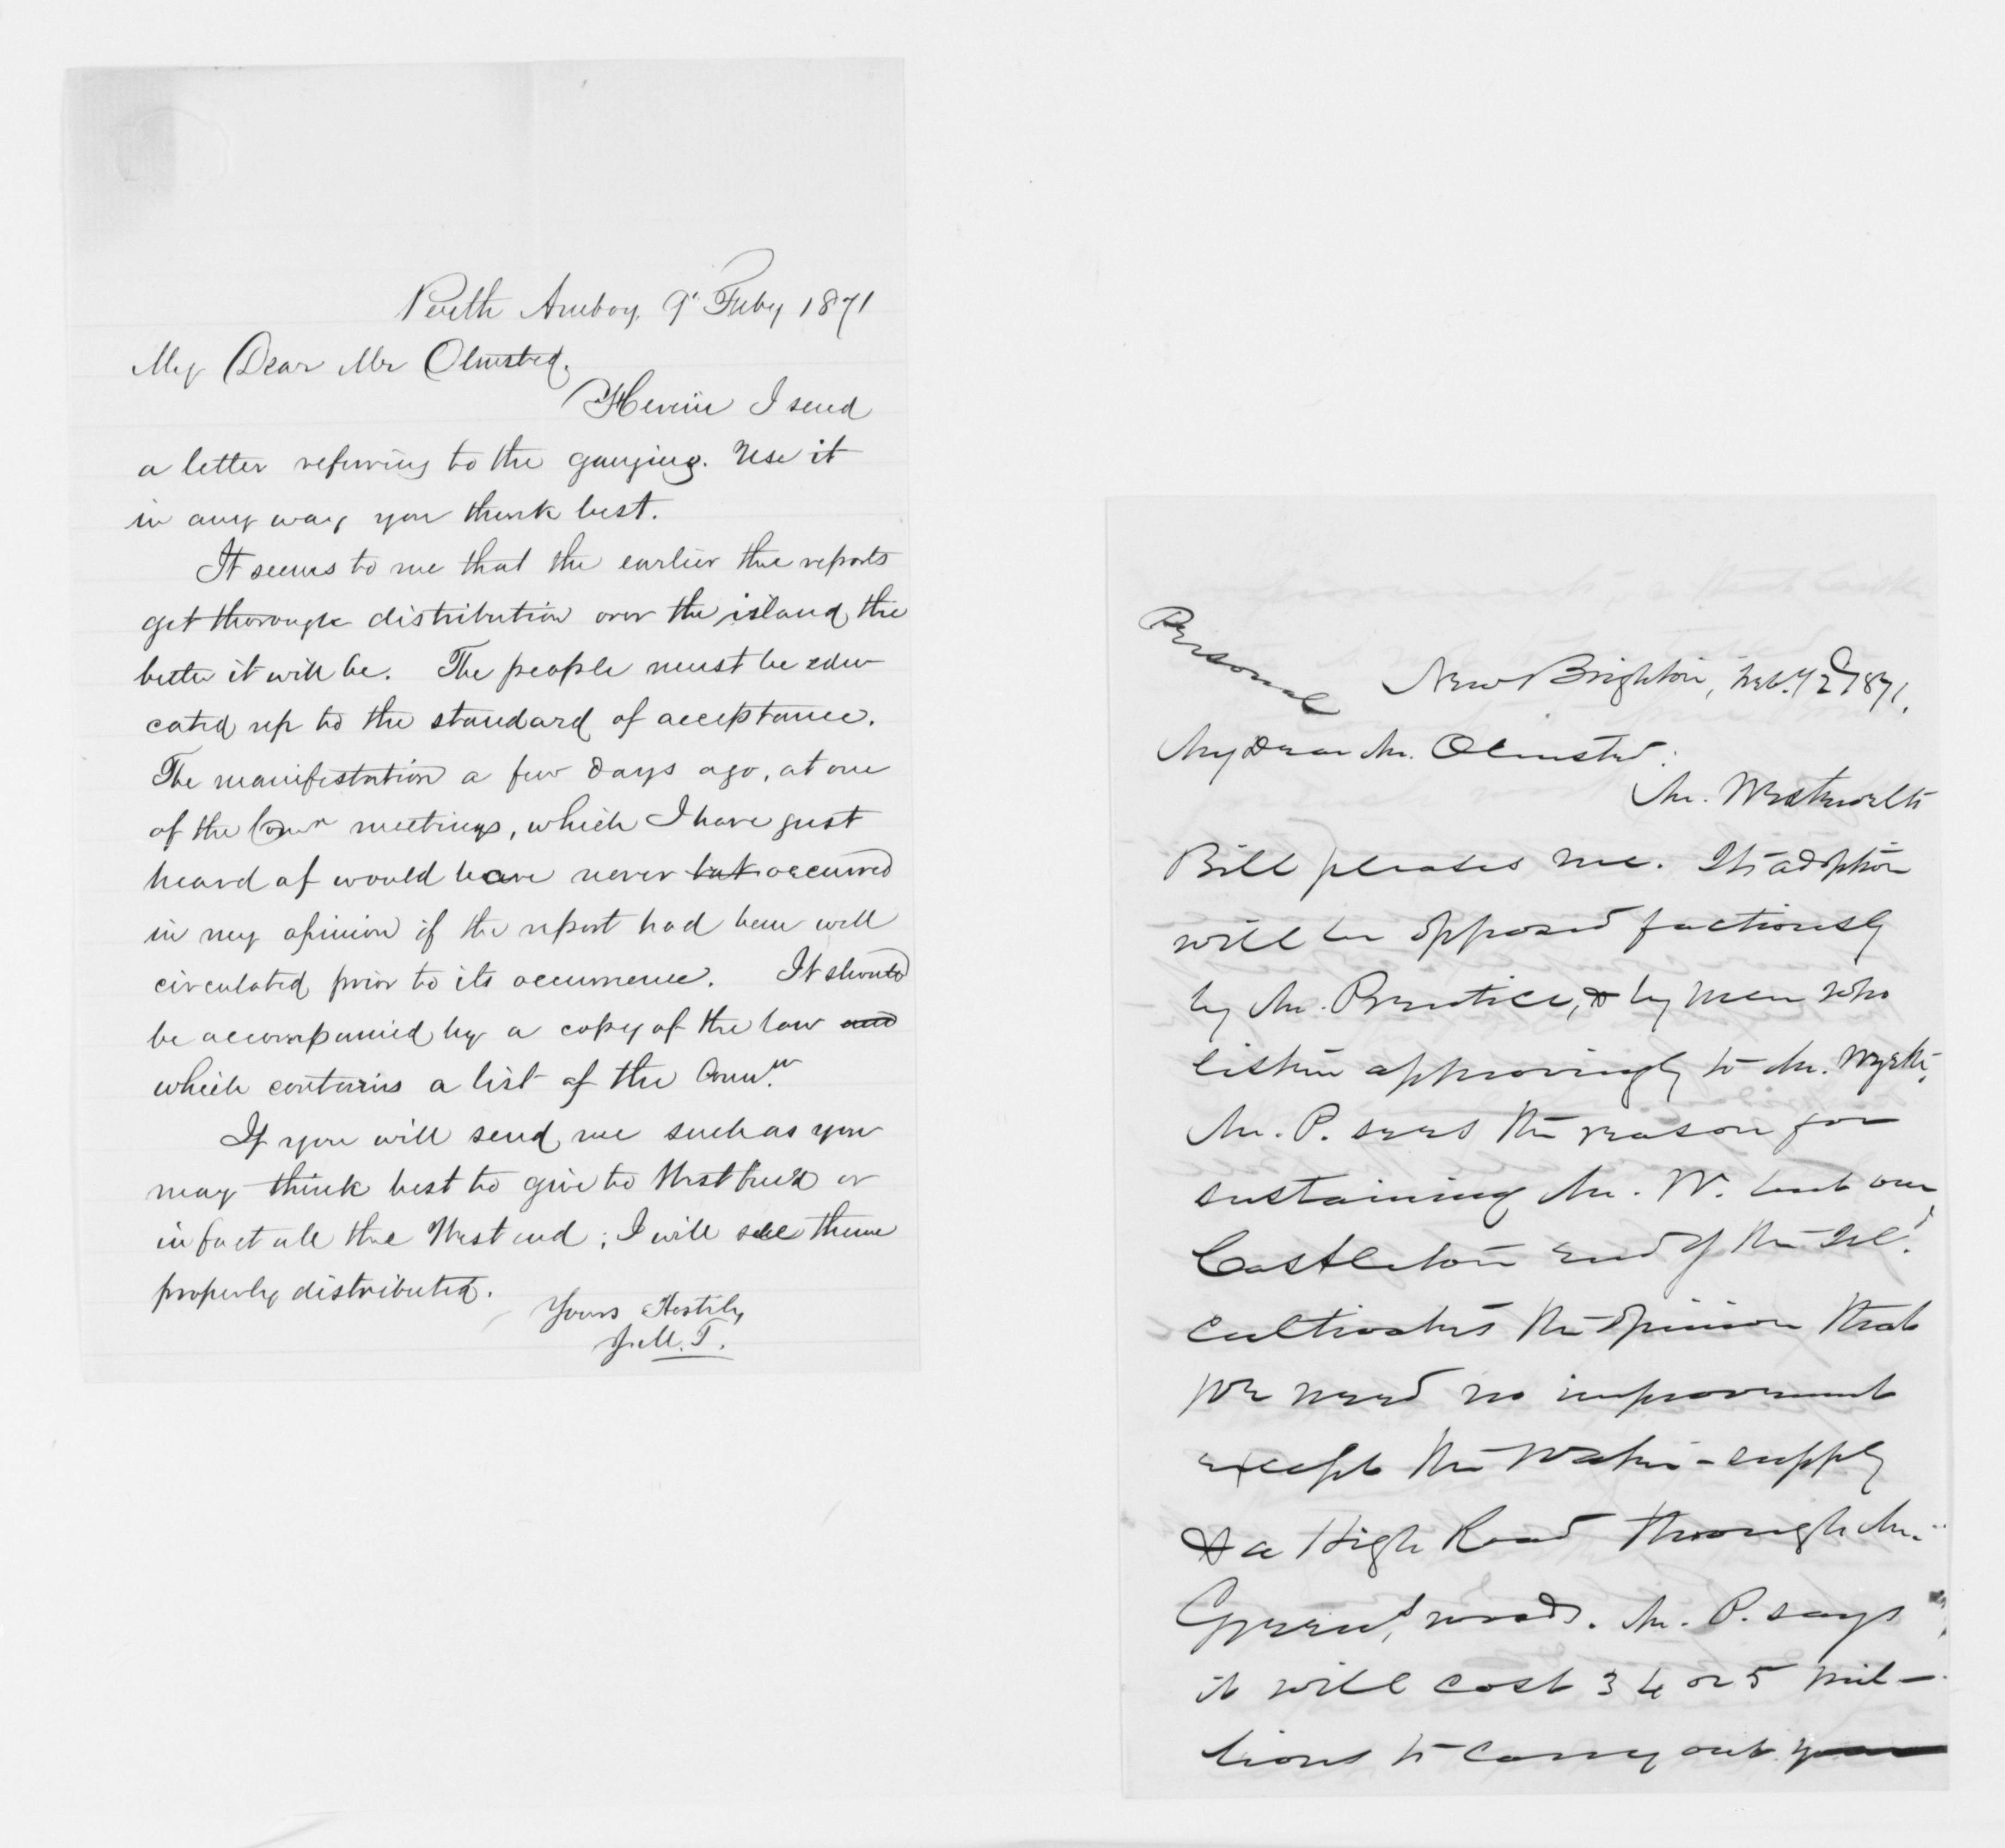 Perth Amboy, 9' Feby 1871
My Dear Mr Olmsted.
Herein I send
a letter referring to the gauging. Use it
in any way you think best.
It seems to me that the earlier the reports
get thorough distribution over the island, the
better it will be. The people must be edu-
cated up to the standard of acceptance.
The manifestation a few days ago, at one
of the Comrs meetings, which I have just
heard of would have never but occurred
in my opinion if the report had been well
circulated prior to its occurrence. It should
be accompanied by a copy of the law and
which contains a list of the Comrs.
If you will send me such as you
may think best to give to Westfield or
in fact all the West end; I will see them
properly distributed.
Yours Hastily
J.M.T.
Personal
New Brighton, Feb. 12 1871.
My dear Mr. Olmsted:
Mr. Westervelts
Bill pleases me. Its adoption
will be opposed factiously
by Mr. Prentice, & by men who
listen approvingly to Mr.
Mr. P. sees the reason for
sustaining Mr. W. but our
Castleton end of the Isl.
cultivates the opinion that
we need no improvement
except the water-supply
& a High Road through Mr.
Green's woods. Mr. P. says
it will cost 3 4 or 5 mil-
lions to carry out your